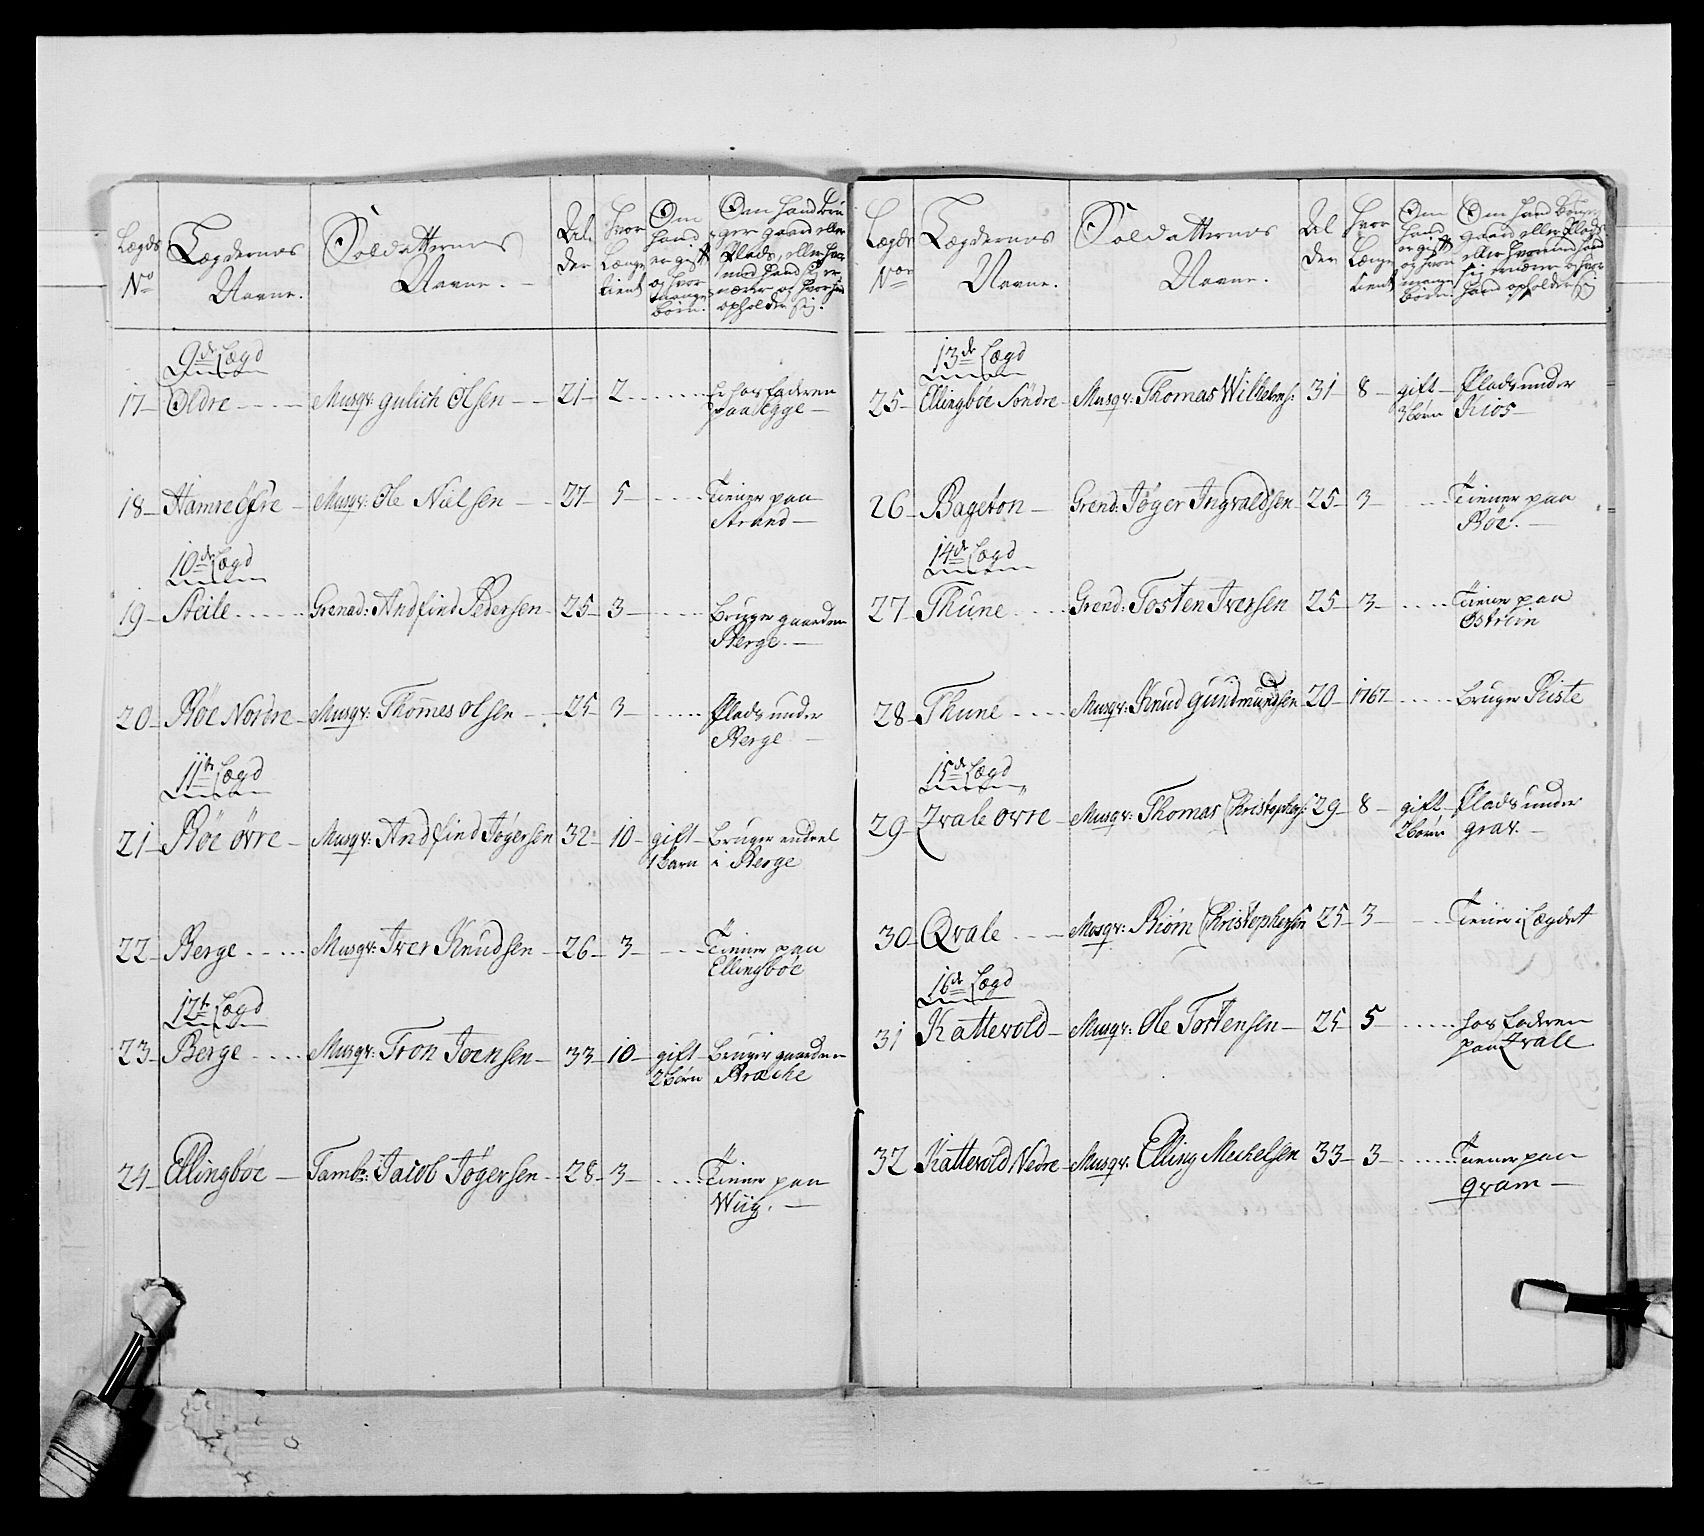 Lægds No
Lægdernes Navne.
Soldatternes Navne.
Al der
Hvor Længe tient
Om hand er gift og hvor mange børn.
Om hand bru
ger gaard eller
Plads, eller hvor
med hand sig er
nærer og hvor hand
opholder sig.
9de Lægd
17 Oldre Musqv: Gulich Olsen 21 2 er hos faderen
paa Egge
18 Hamre Øfre Musqv: Ole Nielsen 27 5 Tiener paa
Strand
10de Lægd
19 Steile Grenad: Andfind Pedersen 25 3 Bruger gaarden
Berge.
20 Bøe Nordre Musqv: Thomes Olsen 25 3 Plads under
Berge
11te Lægd
21 Bøe Øvre Musqv: Andfind Jøgersen 32 10 gift Bruger endeel
1 barn i Berge
22 Berge Musqv: Iver Knudsen 26 3 Tiener paa
Ellingbøe
12te Lægd
23 Berge Musqv: Tron Joensen 33 10 gift Bruger gaarden
2 børn Bræcke
24 Ellingbøe Tamb: Jacob Jøgersen 28 3 Tiener paa
Wiig.
Lægds Noe
Lægdernes Navne.
Soldatternes Navne.
Al der
Hvor Længe tient
Om hand er gift og hvor mange børn
Om hand bruger
gaard eller Plads
eller hvormed hand
sig ernærer og hvor
hand opholder sig
13de Lægd
25 Ellingbøe Søndre Musqv: Thomas Wilhelms: 31 8 gift Plads under
3 børn Kios
26 Bageton Grend: Jøger Ingvaldsen 25 3 Tiener paa
Bøe.
14de Lægd
27 Thune Grend: Tosten Iversen 25 3 Tiener paa
Østrein
28 Thune Musqv: Knud Gundmundsen 20 1767 Bruger Riste
15de Lægd
29 Qvale Øvre Musqv: Thomas Christophers: 29 8 gift Plads under
2 børn Grav.
30 Qvale Musqv: Biørn Christophersen 25 3 Tiener i Lægdet
16de Lægd
31 Kattevold Musqv: Ole Tostensen 25 5 hos Faderen
paa Qvale
32 Kattevold Nedre Musqv: Elling Mechelsen 33 3 Tiener paa
Qvam